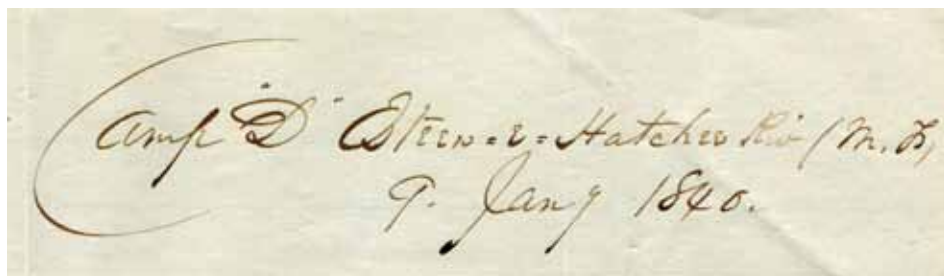 Camp "D" Esteen=e=Hatchee Riv (M. F.)
9. Jany 1840.